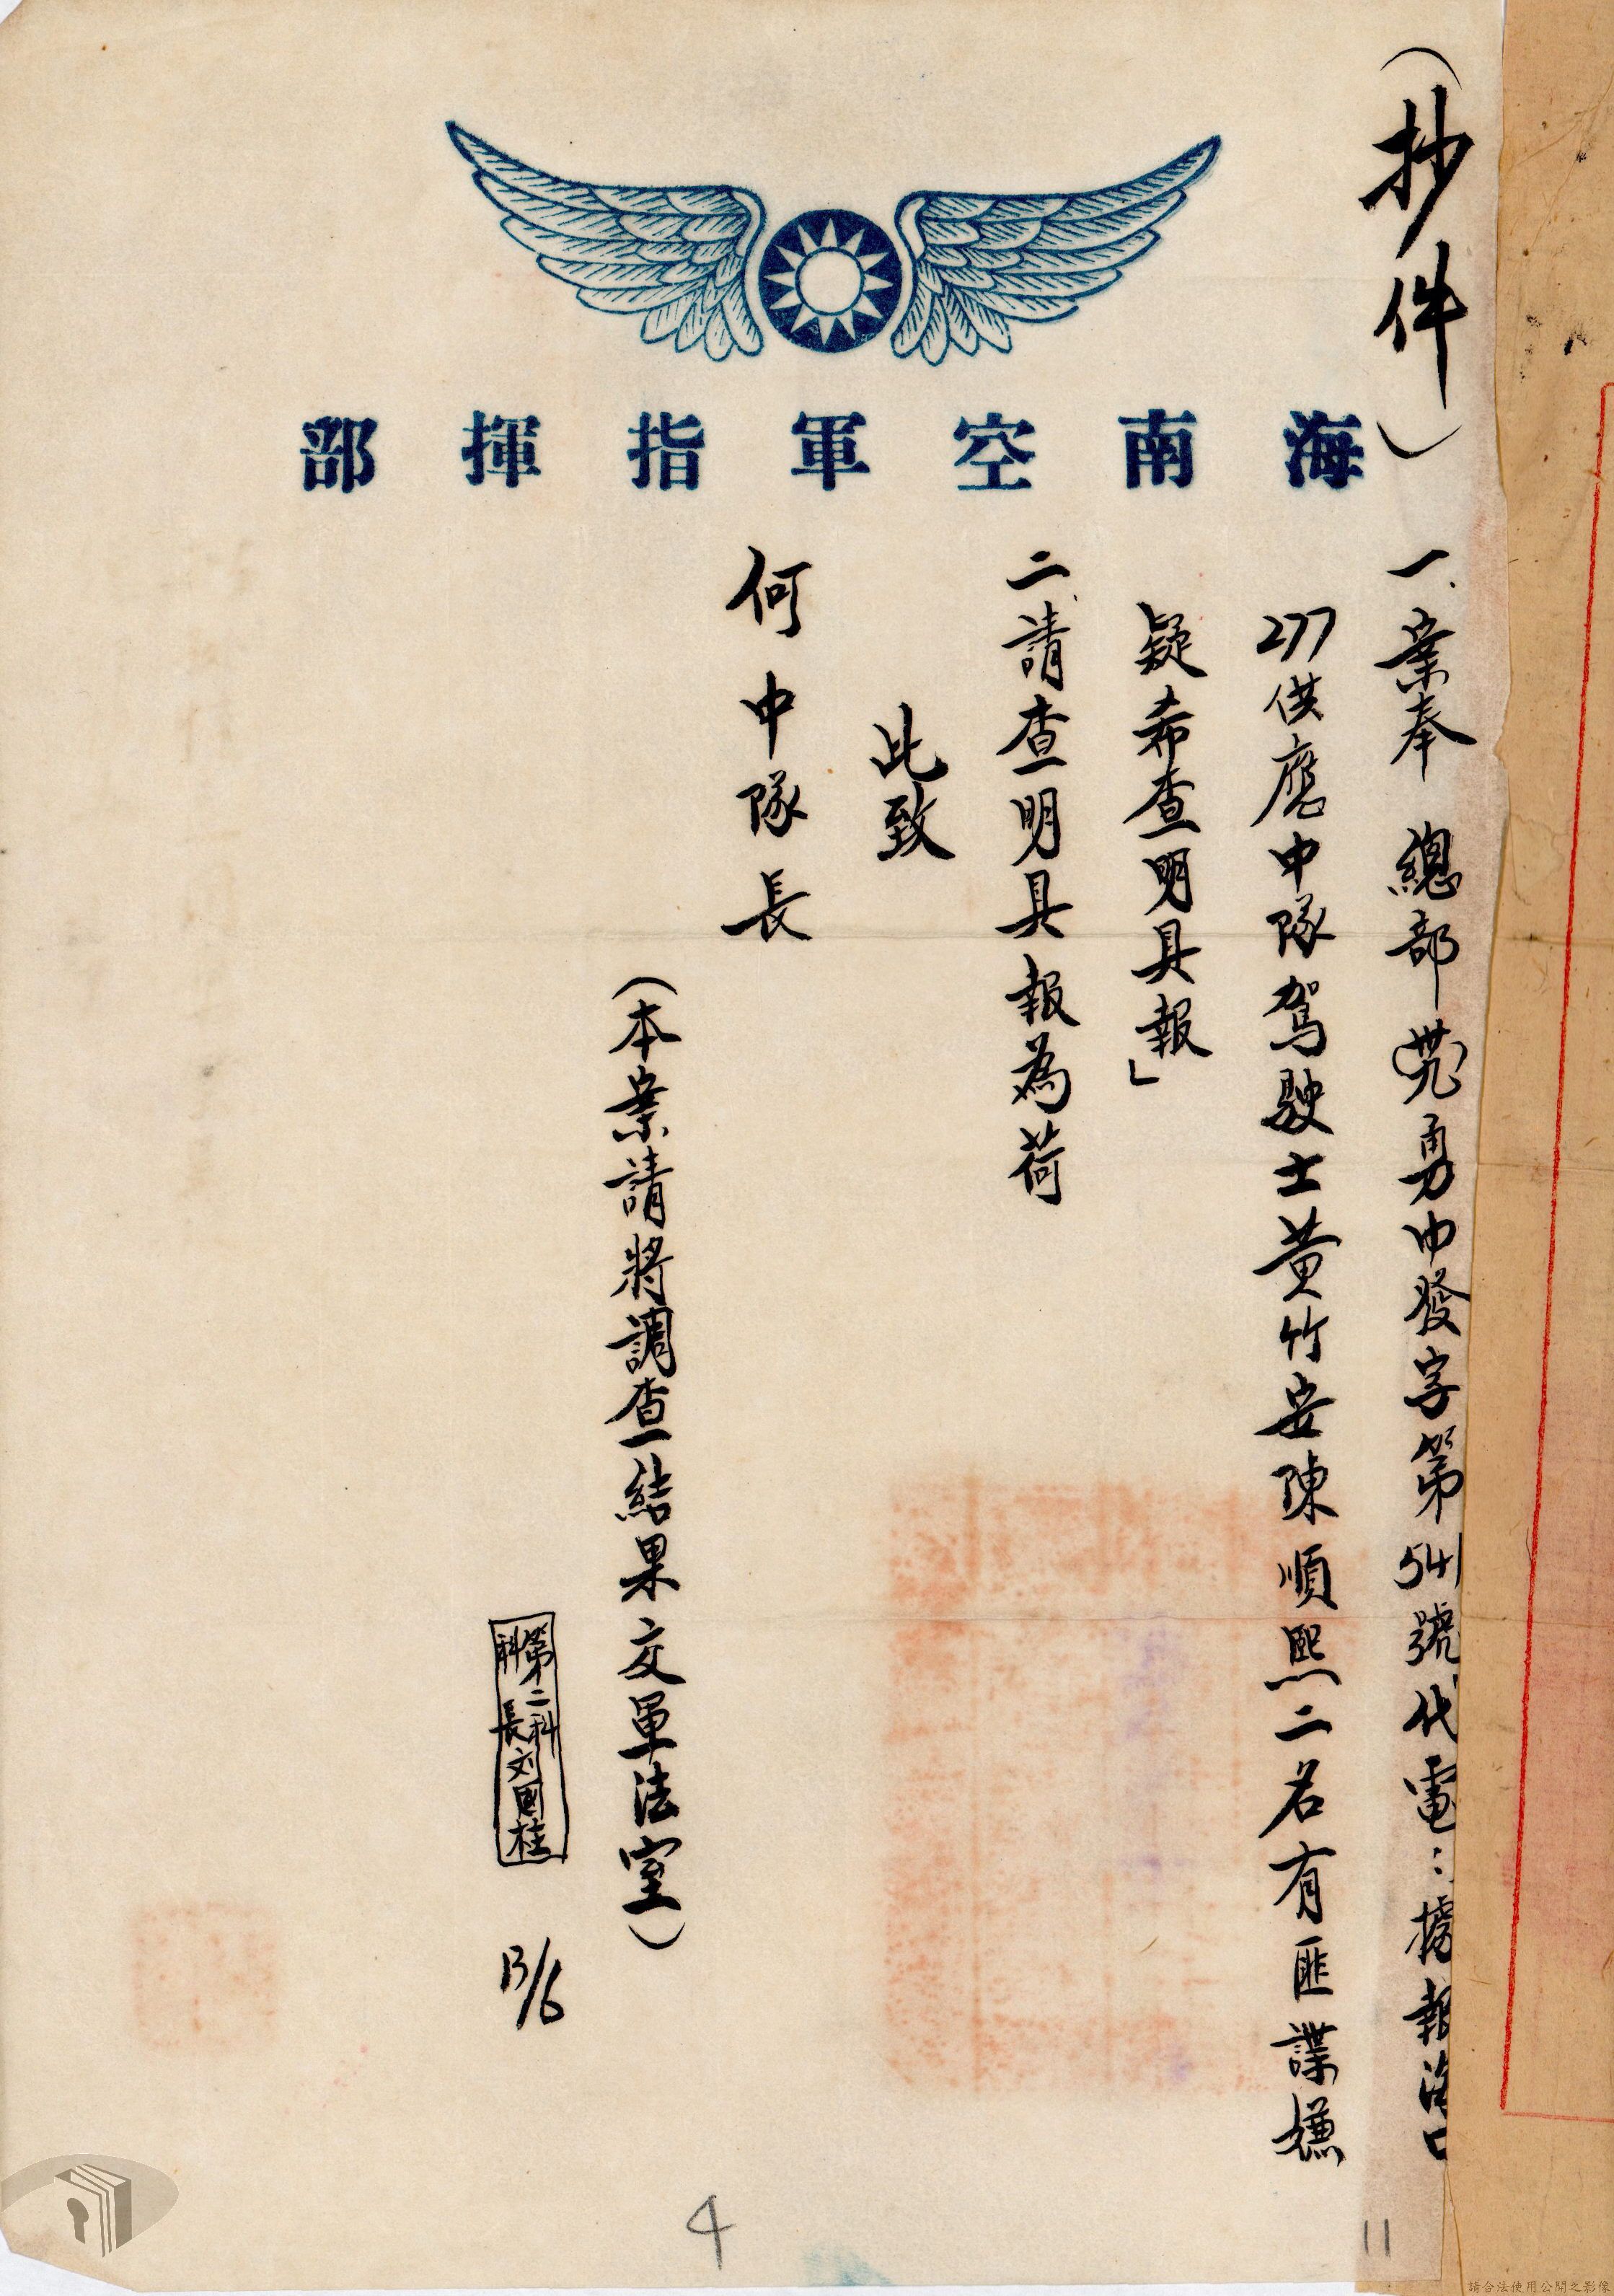 (抄件)
海南空軍指揮部
一、案奉 總部(卅九)勇中發字第541號代電：據報海口
277供應中隊駕駛士黃竹安陳順熙二名有匪諜嫌
疑希查明具報」
二、請查明具報為荷
此致
何中隊長
(本案請將調查結果交軍法室)
第二科科長刘國桂
13/6
4
11
請合法使用公開之影像